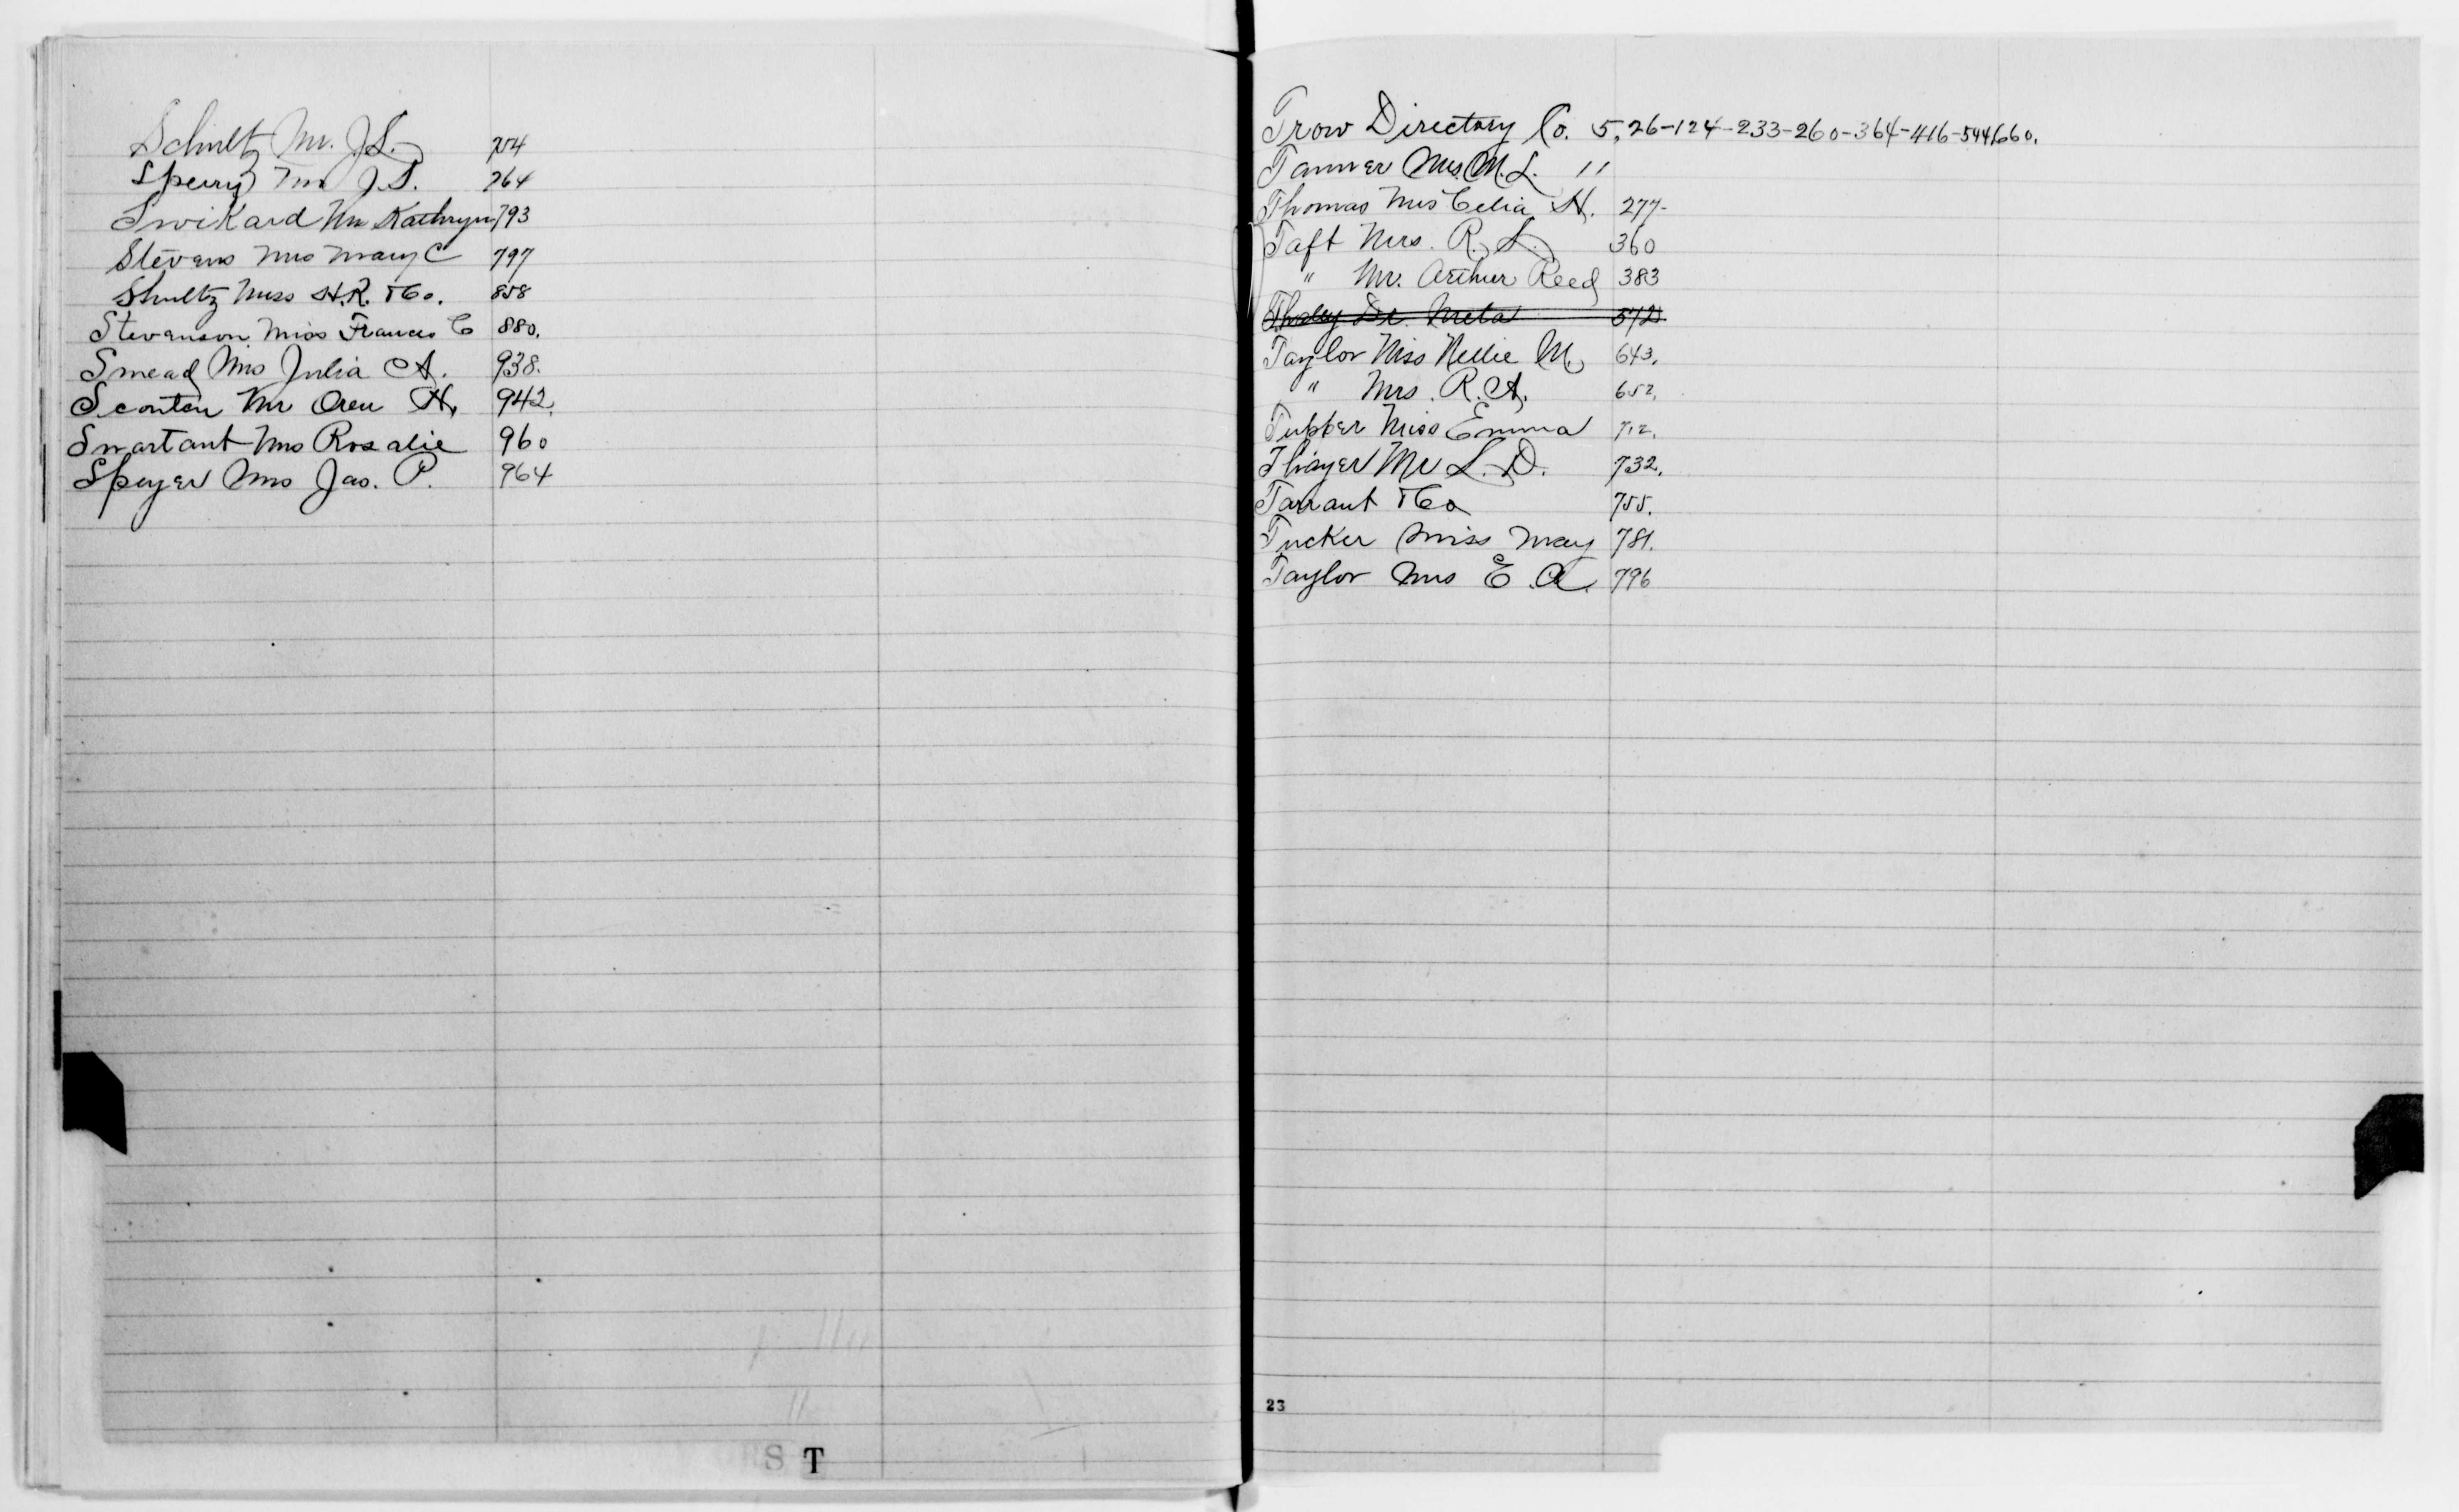 Schultz Mr. J. S. 704
Sperry Mr J. S. 764
Swikard Mrs Kathryn 793
Stevens Mrs Mary C 797
Shultz Miss H. R. & Co. 858
Stevenson Miss Frances C 880.
Smead Mrs Julia A. 938.
Scouten Mr Oren H. 942.
Smartant Mrs Rosalie 960
Speyer Mrs Jas. P. 964
S T
Trow Directory Co. 5, 26-124-233-260-364-416-544,660.
Tanner Mrs. M. L. 11
Thomas Mrs Celia H. 277-
Taft Mrs. R. S. 360
" Mr. Arthur Reed 383
Dr. Meta 572
Taylor Miss Nellie M. 643.
" Mrs. R. A. 652.
Tupper Miss Emma 712.
Thayer Mr L. D. 732.
Tarrant & Co 755.
Tucker Miss May 781.
Taylor Mrs E. A. 796
23